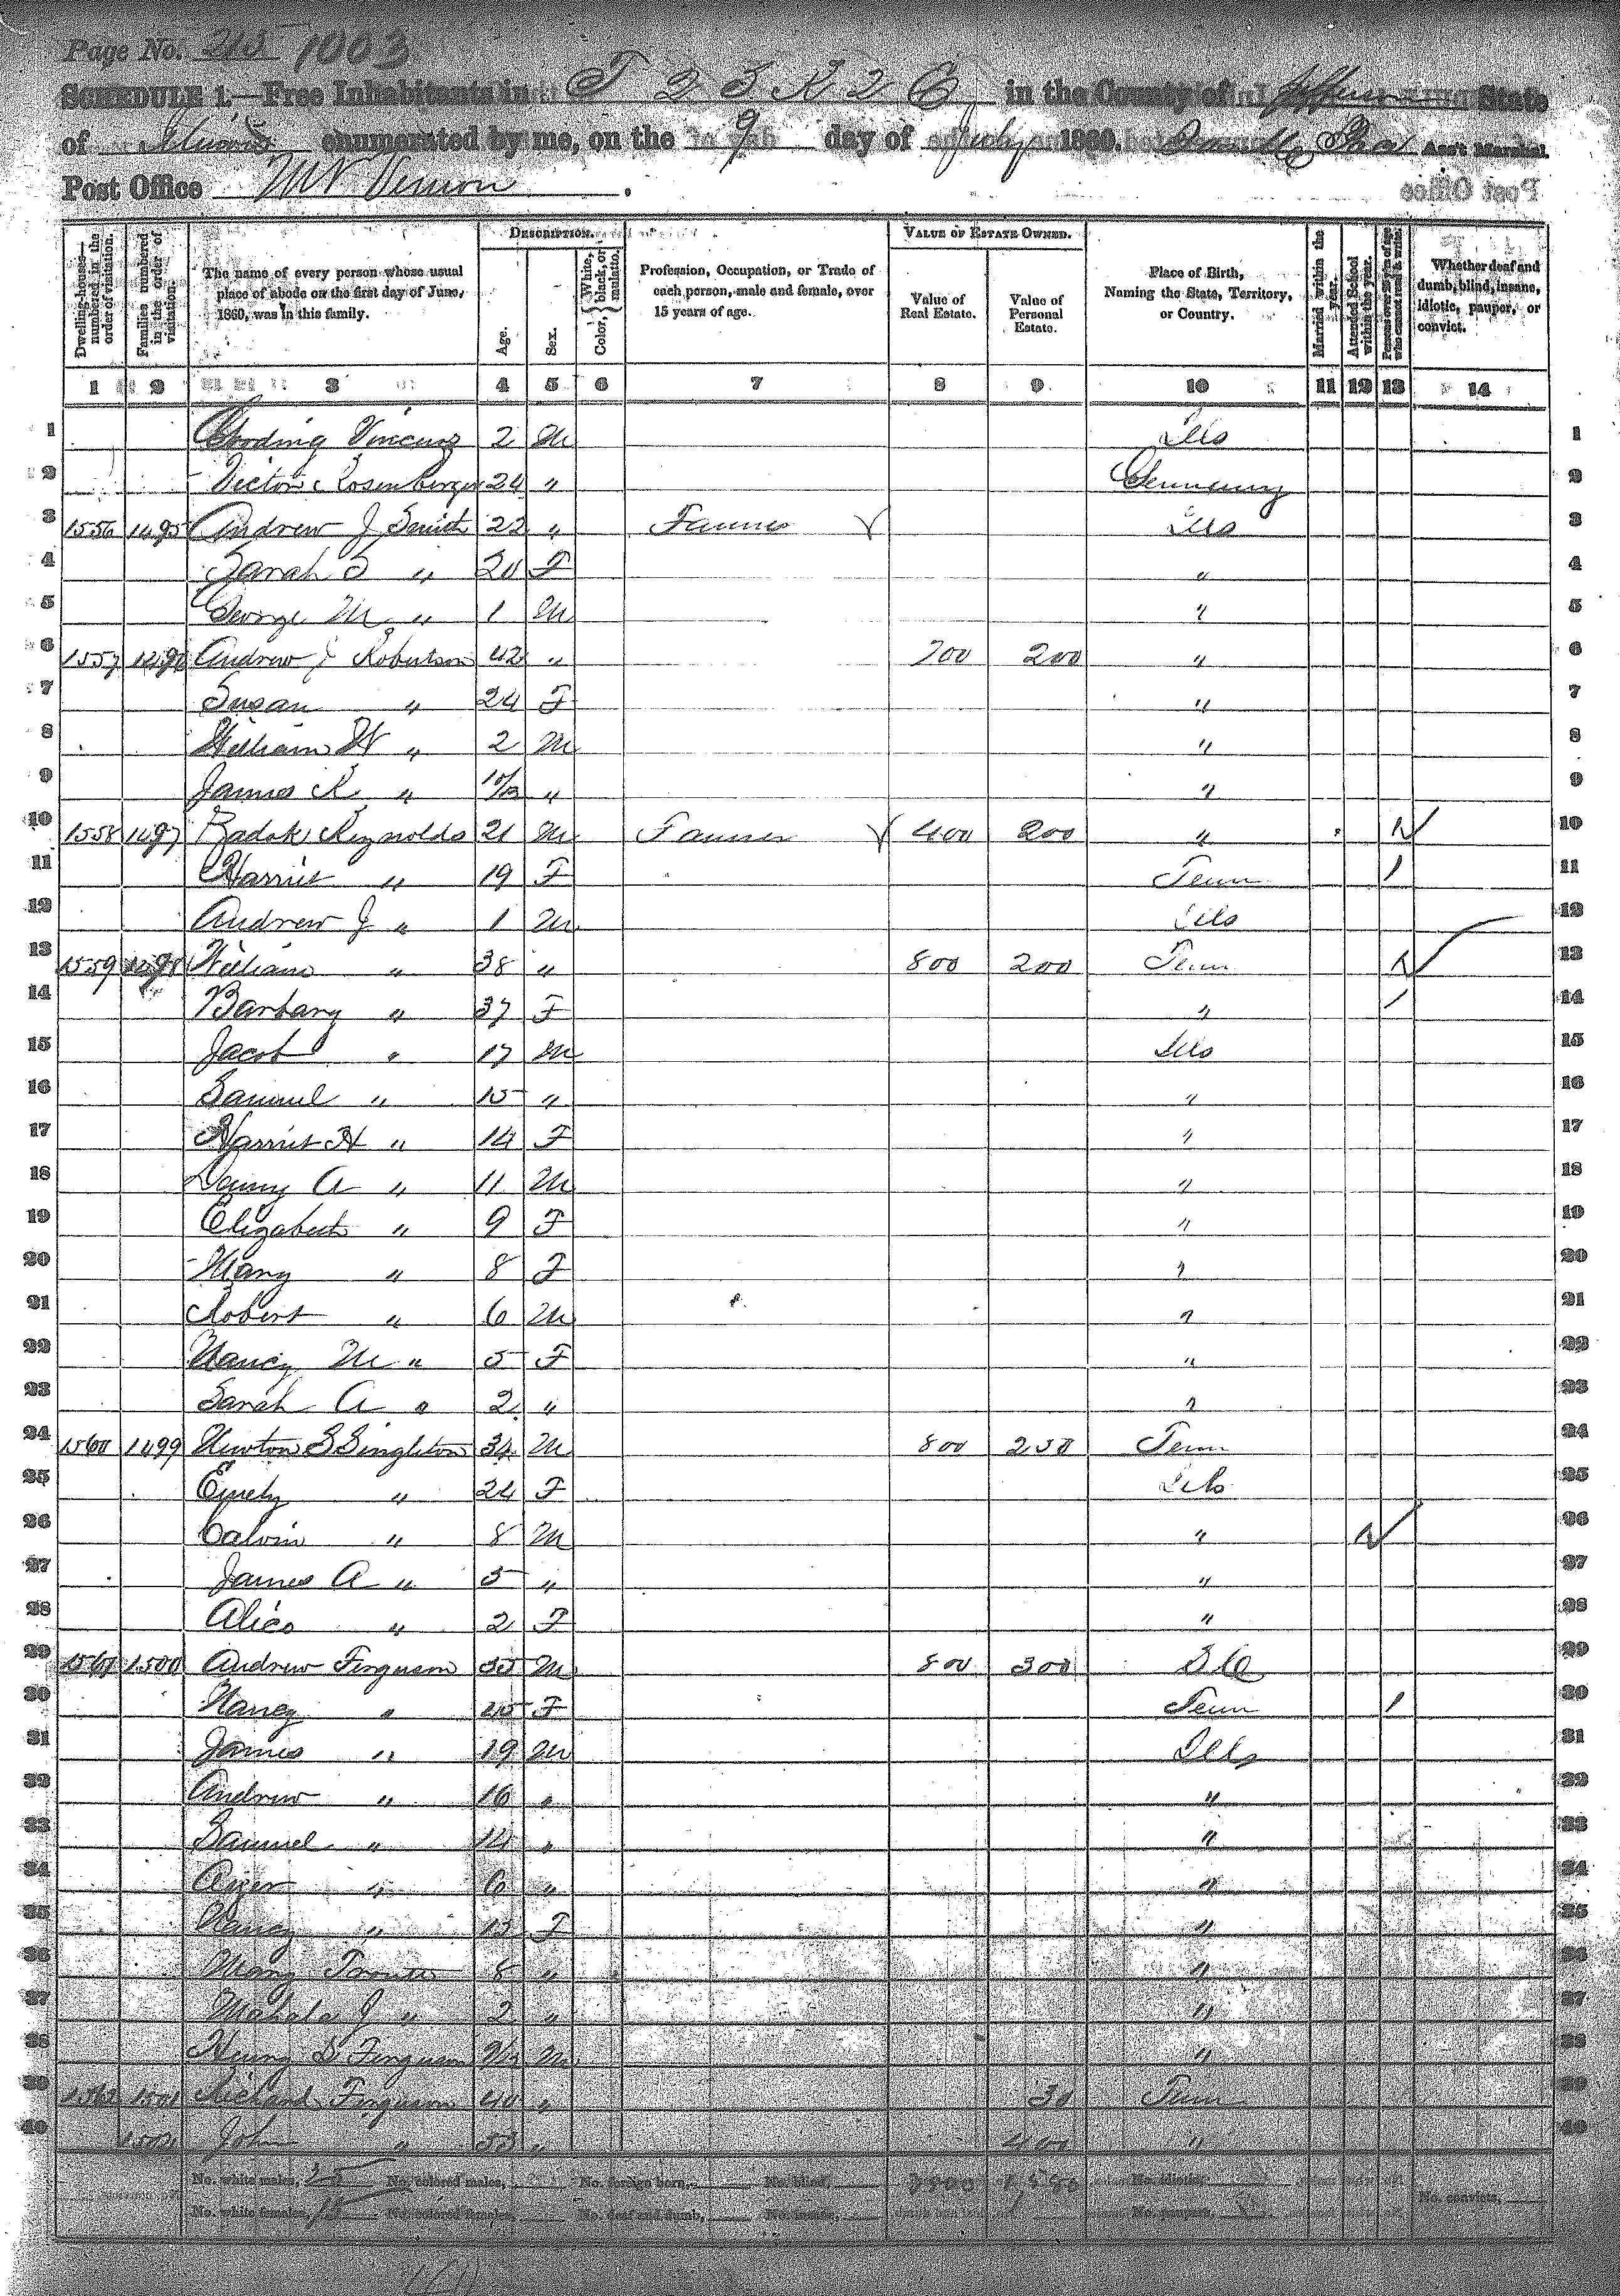 Page No. 215 1003
SCHEDULE 1.—Free Inhabitants in T 2 S R 2 E in the County of Jefferson State
of Illinois enumerated by me, on the 9 day of July 1860. Ass't Marshal.
Post Office Mt Vernon
Dwelling-houses—numbered in the order of visitation.
Families numbered in the order of visitation.
The name of every person whose usual place of abode on the first day of June, 1860, was in this family.
DESCRIPTION.
Age.
Sex.
Color, { White, black, or mulatto.
Profession, Occupation, or Trade of each person, male and female, over 15 years of age.
VALUE OF ESTATE OWNED.
Value of Real Estate.
Value of Personal Estate.
Place of Birth, Naming the State, Territory, or Country.
Married within the year.
Attended School within the year.
Persons over 20 y'rs of age who cannot read & write.
Whether deaf and dumb, blind, insane, idiotic, pauper, or convict.
1 2 3 4 5 6 7 8 9 10 11 12 13 14
1 Vincens 2 M Ills 1
2 Victor Rosenberger 24 " Germany 2
3 1556 1495 Andrew J Smith 22 " Farmer Ills 3
4 Sarah S " 20 F " 4
5 George M " 1 M " 5
6 1557 1496 Andrew J Robertson 42 " 700 200 " 6
7 Susan " 24 F " 7
8 William W " 2 M " 8
9 James K " 10/12 " " 9
10 1558 1497 Zadok Reynolds 21 M Farmer 400 200 " 1 10
11 Harriet " 19 F Tenn 1 11
12 Andrew J " 1 M Ills 12
13 1559 1498 William " 38 " 800 200 Tenn 1 13
14 Barbary " 37 F " 1 14
15 Jacob " 17 M Ills 15
16 Samuel " 15 " " 16
17 Harriet H " 14 F " 17
18 A " 11 M " 18
19 Elizabeth " 9 F " 19
20 Mary " 8 F " 20
21 Robert " 6 M " 21
22 Nancy M " 5 F " 22
23 Sarah A " 2 " " 23
24 1560 1499 Newton S Singleton 34 M 800 250 Tenn 24
25 Emely " 24 F Ills 25
26 Calvin " 8 M " 1 26
27 James A " 5 " " 27
28 Alice " 2 F " 28
29 1561 1500 Andrew Ferguson 55 M 800 300 S C 29
30 Nancy " 45 F Tenn 1 30
31 James " 19 M Ills 31
32 Andrew " 16 " " 32
33 Samuel " 14 " " 33
34 " 6 " " 34
35 Nancy " 13 F " 35
36 Mary 8 " " 36
37 Mahala J " 2 " " 37
38 Henry S Ferguson 9/12 M " 38
39 1562 1501 Richard Ferguson 40 " 30 Tenn 39
40 John " 53 " 400 " 40
No. white males, 25 No. colored males, No. foreign born, No. blind, No. idiotic,
No. white females, 15 No. colored females, No. deaf and dumb, No. insane, No. paupers, No. convicts,